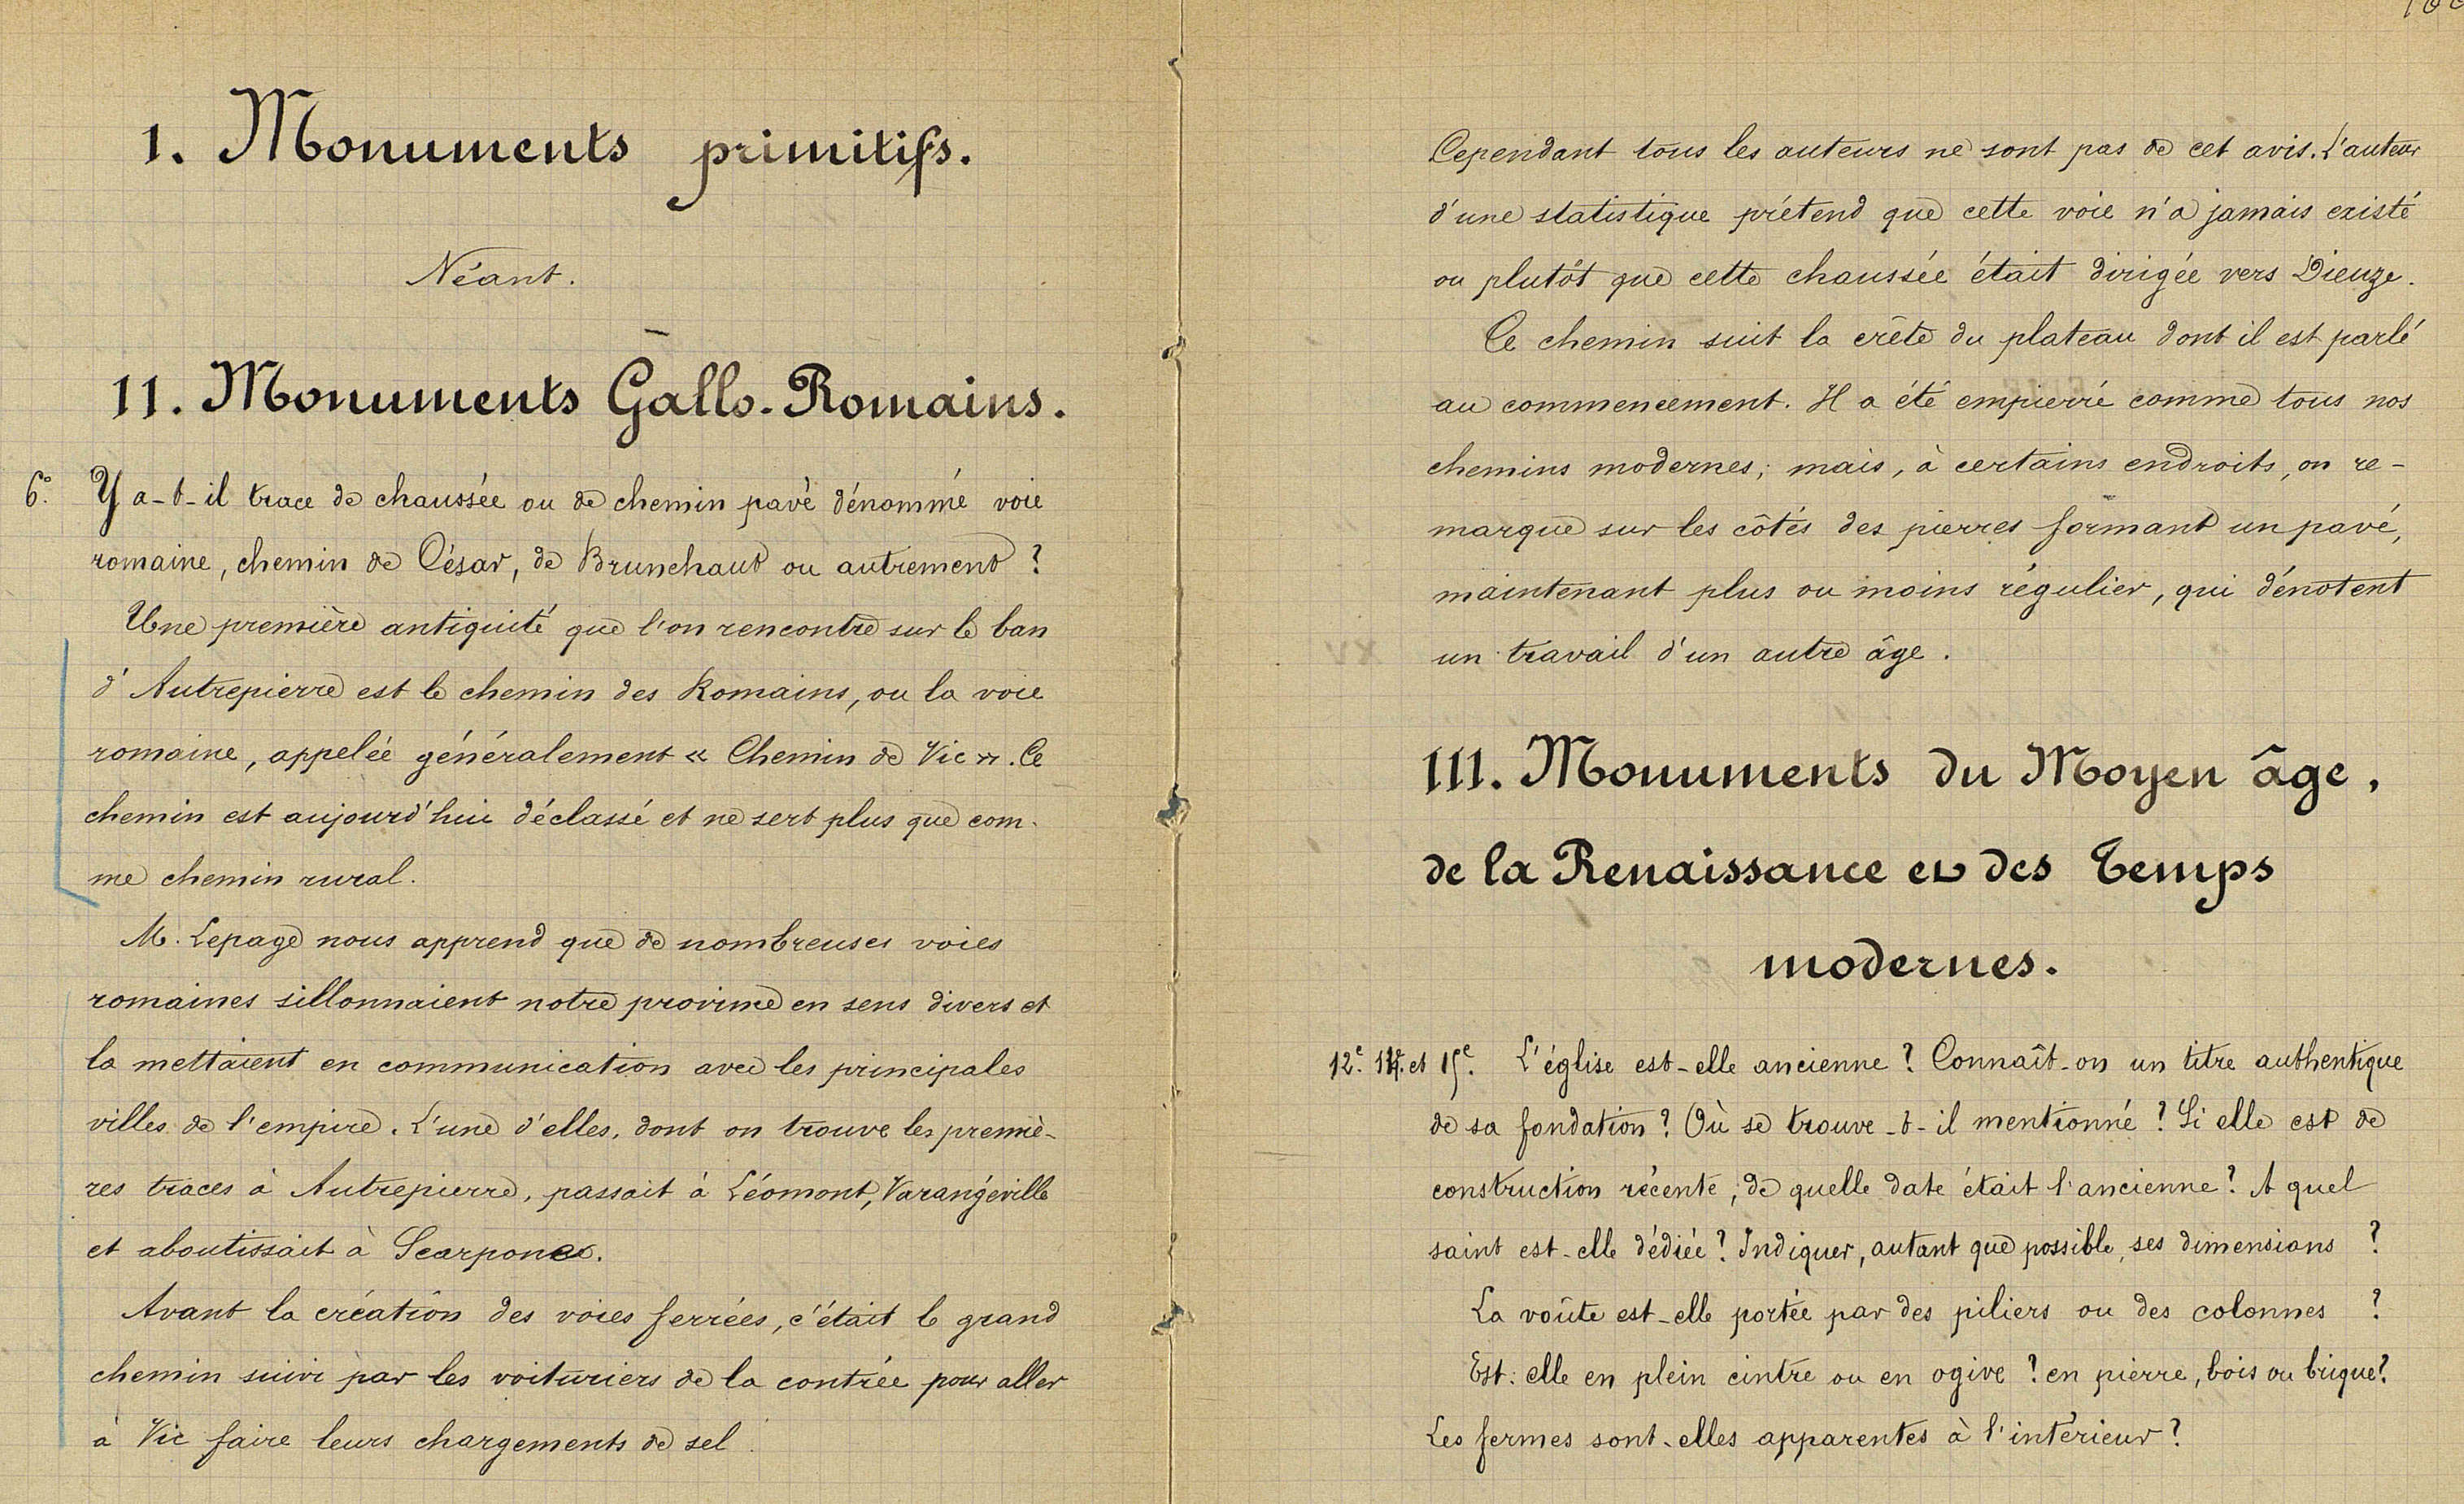 1. Monuments primitifs.
Néant.
11. Monuments Gallo-Romains.
6° Y a-t-il trace de chaussée ou de chemin pavé dénommé voie
romaine, chemin de César, de Brunehaut ou autrement ?
Une première antiquité que l'on rencontre sur le ban
d'Autrepierre est le chemin des Romains, ou la voie
romaine, appelée généralement « Chemin de Vic ». Ce
chemin est aujourd'hui déclassé et ne sert plus que com-
me chemin rural.
M. Lepage nous apprend que de nombreuses voies
romaines sillonnaient notre province en sens divers et
la mettaient en communication avec les principales
villes de l'empire. L'une d'elles, dont on trouve les premiè-
res traces à Autrepierre, passait à Léomont, Varangéville
et aboutissait à Scarpone.
Avant la création des voies ferrées, c'était le grand
chemin suivi par les voituriers de la contrée pour aller
à Vic faire leurs chargements de sel.
Cependant tous les auteurs ne sont pas de cet avis. L'auteur
d'une statistique prétend que cette voie n'a jamais existé
ou plutôt que cette chaussée était dirigée vers Dieuze.
Ce chemin suit la crête du plateau dont il est parlé
au commencement. Il a été empierré comme tous nos
chemins modernes; mais, à certains endroits, on re-
marque sur les côtés des pierres formant un pavé,
maintenant plus ou moins régulier, qui dénotent
un travail d'un autre âge.
111. Monuments du Moyen âge,
de la Renaissance et des Temps
modernes.
12e. 14e. et 15e. L'église est-elle ancienne ? Connaît-on un titre authentique
de sa fondation ? Où se trouve-t-il mentionné ? Si elle est de
construction récente, de quelle date était l'ancienne ? A quel
saint est-elle dédiée ? Indiquer, autant que possible, ses dimensions ?
La voûte est-elle portée par des piliers ou des colonnes ?
Est-elle en plein cintre ou en ogive ? en pierre, bois ou brique ?
Les fermes sont-elles apparentes à l'intérieur ?